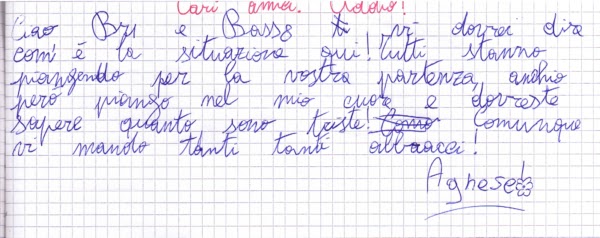 Cari amici. Addio!
Ciao Bry e Bass8 ti vi dovrei dire
com'è la situazione qui! Tutti stanno
piangendo per la vostra partenza, anch'io
però piango nel mio cuore e dovreste
sapere quanto sono triste! Como Comunque
vi mando tanti tanti abbracci!
Agnese